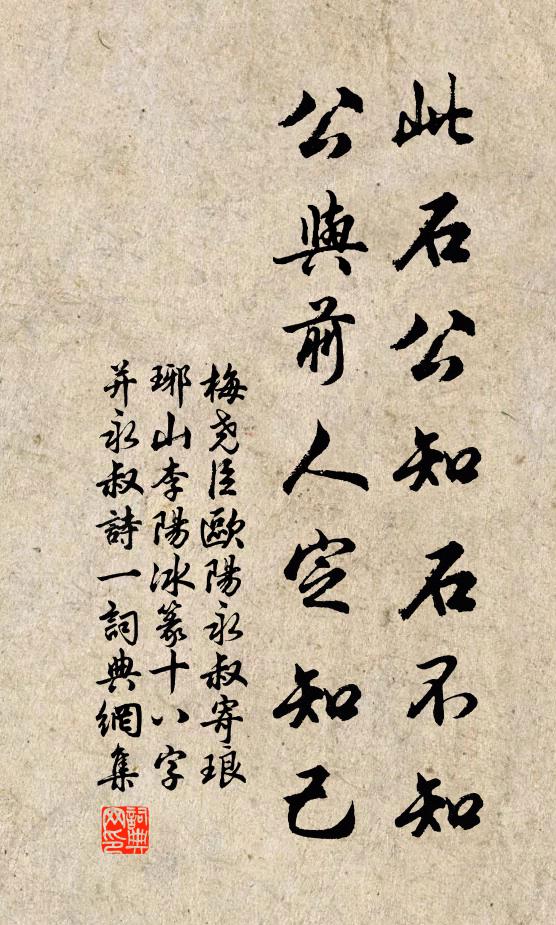 此石公知石不知
公與前人定知己
梅堯臣歐陽永叔寄琅
琊山李陽冰篆十八字
并永叔詩一詞典網集
詞典
网印